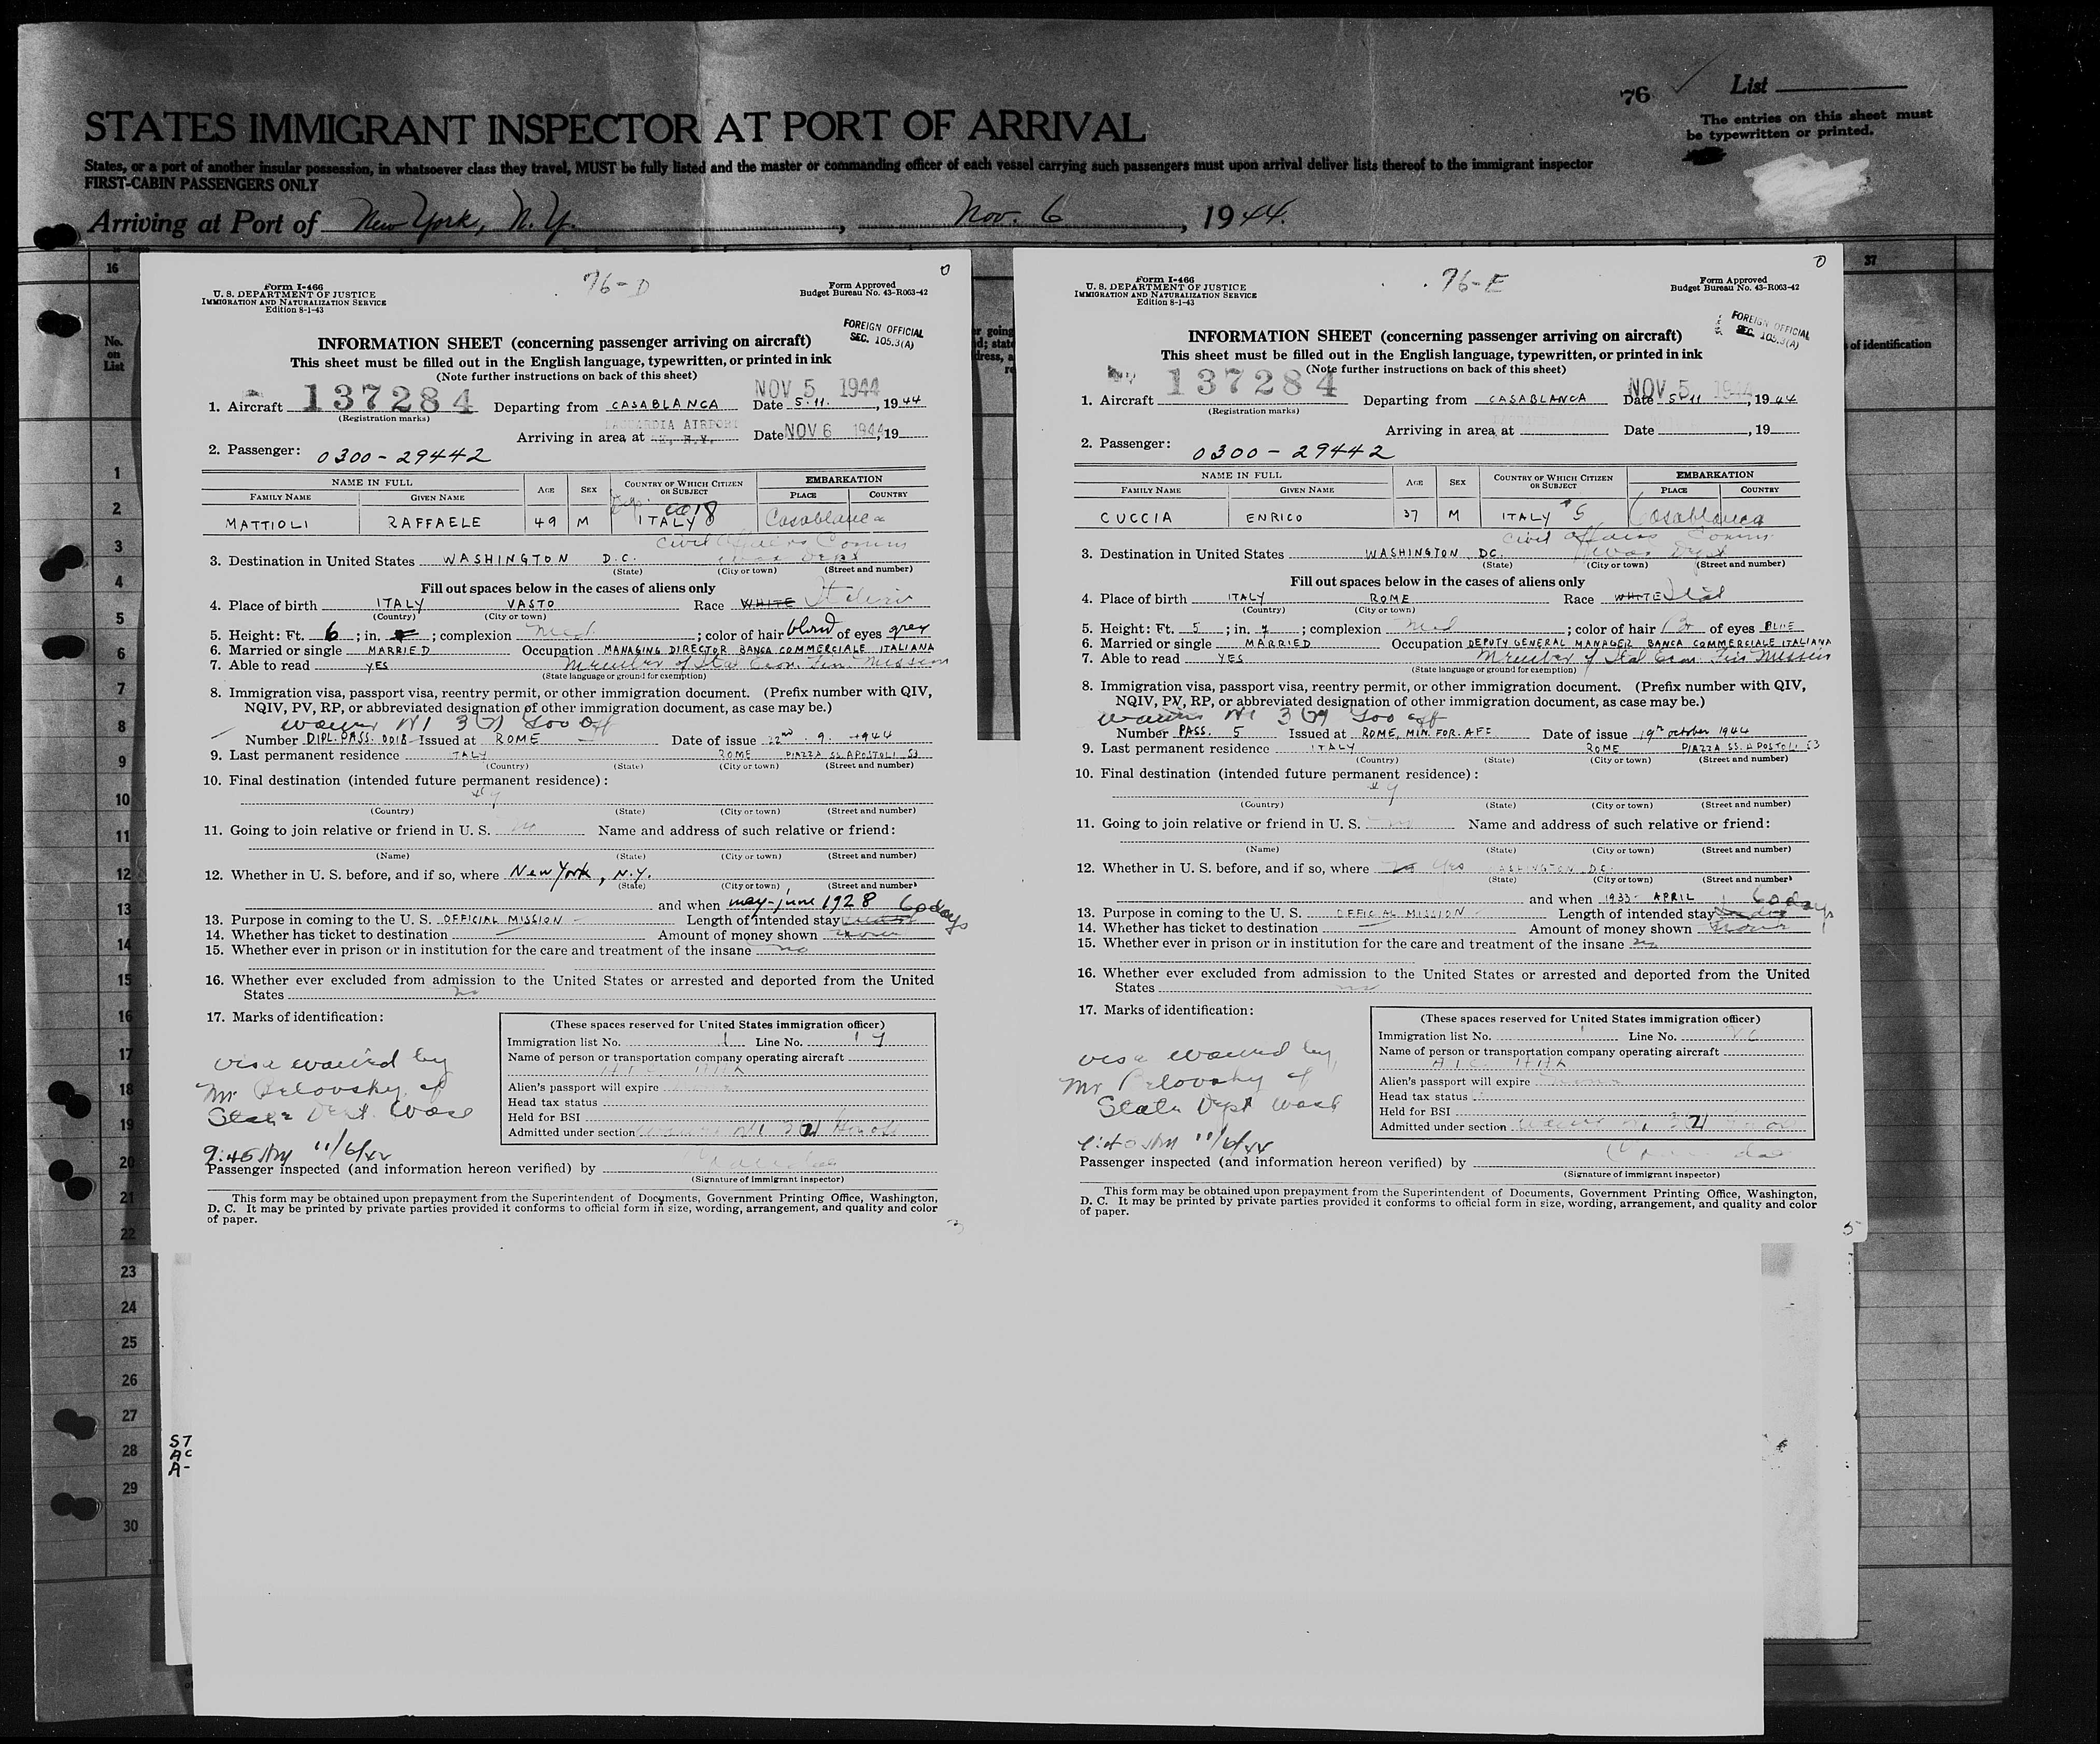 76
List
STATES IMMIGRANT INSPECTOR AT PORT OF ARRIVAL
The entries on this sheet must
be typewritten or printed.
States, or a port of another insular possession, in whatsoever class they travel, MUST be fully listed and the master or commanding officer of each vessel carrying such passengers must upon arrival deliver lists thereof to the immigrant inspector
FIRST-CABIN PASSENGERS ONLY
Arriving at Port of New York, N.Y., Nov. 6, 1944.
16
37
No.
on
List
of identification
1
2
3
4
5
6
7
8
9
10
11
12
13
14
15
16
17
18
19
20
21
22
23
24
25
26
27
28
29
30
76-D
Form I-466
U. S. DEPARTMENT OF JUSTICE
IMMIGRATION AND NATURALIZATION SERVICE
Edition 8-1-43
Form Approved
Budget Bureau No. 43-R063-42
FOREIGN OFFICIAL
SEC. 105.3(A)
INFORMATION SHEET (concerning passenger arriving on aircraft)
This sheet must be filled out in the English language, typewritten, or printed in ink
(Note further instructions on back of this sheet)
NOV 5 1944
1. Aircraft 137284 Departing from CASABLANCA Date 5.11., 1944
(Registration marks)
Arriving in area at LAGUARDIA AIRPORT N.Y. Date NOV 6 1944, 19
2. Passenger: 0300-29442
NAME IN FULL AGE SEX COUNTRY OF WHICH CITIZEN OR SUBJECT EMBARKATION
FAMILY NAME GIVEN NAME PLACE COUNTRY
0018
MATTIOLI RAFFAELE 49 M ITALY Casablanca
Civil Affairs Comm
3. Destination in United States WASHINGTON D.C. War Dept
(State) (City or town) (Street and number)
Fill out spaces below in the cases of aliens only
4. Place of birth ITALY VASTO Race WHITE Italian
(Country) (City or town)
5. Height: Ft. 6; in. ; complexion Med.; color of hair blond of eyes grey
6. Married or single MARRIED Occupation MANAGING DIRECTOR BANCA COMMERCIALE ITALIANA
7. Able to read YES Member of Ital Econ. Fin. Mission
(State language or ground for exemption)
8. Immigration visa, passport visa, reentry permit, or other immigration document. (Prefix number with QIV,
NQIV, PV, RP, or abbreviated designation of other immigration document, as case may be.)
Number DIPL. PASS. 0018 Issued at ROME Date of issue 22nd . 9. 1944
9. Last permanent residence ITALY ROME PIAZZA SS. APOSTOLI 53
(Country) (State) (City or town) (Street and number)
10. Final destination (intended future permanent residence):
(Country) (State) (City or town) (Street and number)
11. Going to join relative or friend in U. S. no Name and address of such relative or friend:
(Name) (State) (City or town) (Street and number)
12. Whether in U. S. before, and if so, where New York, N.Y.
(State) (City or town) (Street and number)
and when may-june 1928 60 days
13. Purpose in coming to the U. S. OFFICIAL MISSION Length of intended stay
14. Whether has ticket to destination Amount of money shown
15. Whether ever in prison or in institution for the care and treatment of the insane no
16. Whether ever excluded from admission to the United States or arrested and deported from the United
States no
17. Marks of identification:
visa waived by
Mr Belovsky of
State Dept. Wash
9:45 AM 11/6/44
(These spaces reserved for United States immigration officer)
Immigration list No. 1 Line No.
Name of person or transportation company operating aircraft
Alien's passport will expire
Head tax status
Held for BSI
Admitted under section
Passenger inspected (and information hereon verified) by
(Signature of immigrant inspector)
This form may be obtained upon prepayment from the Superintendent of Documents, Government Printing Office, Washington,
D. C. It may be printed by private parties provided it conforms to official form in size, wording, arrangement, and quality and color
of paper.
76-E
Form I-466
U. S. DEPARTMENT OF JUSTICE
IMMIGRATION AND NATURALIZATION SERVICE
Edition 8-1-43
Form Approved
Budget Bureau No. 43-R063-42
FOREIGN OFFICIAL
SEC. 105.3(A)
INFORMATION SHEET (concerning passenger arriving on aircraft)
This sheet must be filled out in the English language, typewritten, or printed in ink
(Note further instructions on back of this sheet)
NOV 5 1944
1. Aircraft 137284 Departing from CASABLANCA Date 5.11, 1944
(Registration marks)
Arriving in area at Date , 19
2. Passenger: 0300-29442
NAME IN FULL AGE SEX COUNTRY OF WHICH CITIZEN OR SUBJECT EMBARKATION
FAMILY NAME GIVEN NAME PLACE COUNTRY
CUCCIA ENRICO 37 M ITALY #5 Casablanca
Civil Affairs Comm
3. Destination in United States WASHINGTON DC. War Dept
(State) (City or town) (Street and number)
Fill out spaces below in the cases of aliens only
4. Place of birth ITALY ROME Race WHITE Ital
(Country) (City or town)
5. Height: Ft. 5; in. 7; complexion Med; color of hair Br of eyes BLUE
6. Married or single MARRIED Occupation DEPUTY GENERAL MANAGER BANCA COMMERCIALE ITALIANA
7. Able to read YES Member of Ital Econ. Fin Mission
(State language or ground for exemption)
8. Immigration visa, passport visa, reentry permit, or other immigration document. (Prefix number with QIV,
NQIV, PV, RP, or abbreviated designation of other immigration document, as case may be.)
Number PASS. 5 Issued at ROME, MIN. FOR. AFF Date of issue 19th october 1944
9. Last permanent residence ITALY ROME PIAZZA SS. APOSTOLI 53
(Country) (State) (City or town) (Street and number)
10. Final destination (intended future permanent residence):
(Country) (State) (City or town) (Street and number)
11. Going to join relative or friend in U. S. no Name and address of such relative or friend:
(Name) (State) (City or town) (Street and number)
12. Whether in U. S. before, and if so, where no Yes WASHINGTON D.C.
(State) (City or town) (Street and number)
and when 1933- APRIL 60 days
13. Purpose in coming to the U. S. OFFICIAL MISSION Length of intended stay
14. Whether has ticket to destination Amount of money shown
15. Whether ever in prison or in institution for the care and treatment of the insane no
16. Whether ever excluded from admission to the United States or arrested and deported from the United
States no
17. Marks of identification:
visa waived by
Mr Belovsky of
State Dept Wash
9:40 AM 11/6/44
(These spaces reserved for United States immigration officer)
Immigration list No. Line No.
Name of person or transportation company operating aircraft
Alien's passport will expire
Head tax status
Held for BSI
Admitted under section
Passenger inspected (and information hereon verified) by
(Signature of immigrant inspector)
This form may be obtained upon prepayment from the Superintendent of Documents, Government Printing Office, Washington,
D. C. It may be printed by private parties provided it conforms to official form in size, wording, arrangement, and quality and color
of paper.
5